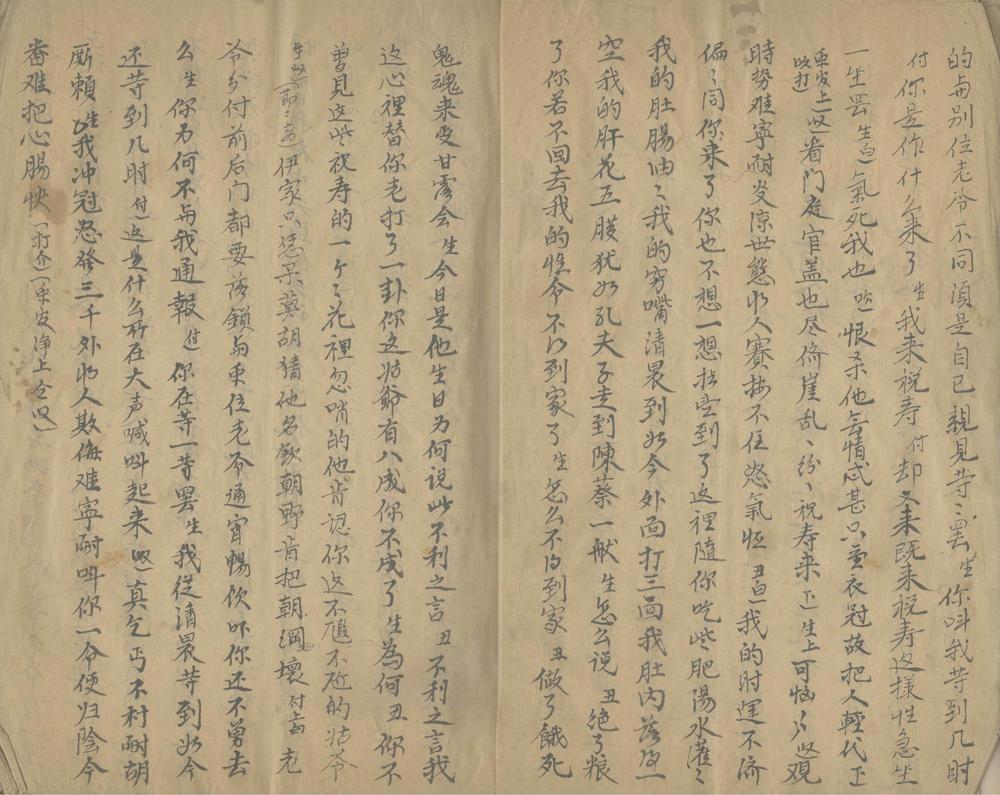 的与别位老爷不同须是自己親見等等罢生你叫我等到几时
付你是作什么来了生我来祝寿付却又来既来祝寿这樣性急坐
一坐罢生白氣死我也唱恨杀他无情忒甚只重衣冠故把人輕代下
吹打上唱看门庭官盖也尽侪崖乱乱纷纷祝寿来下生上可恼可恼唱观
時势难宁耐炎凉世態收人赛按不住怒氣恆丑白我的时運不济
偏偏同你来了你也不想一想指望到了这裡随你吃些肥湯水灌灌
我的肚腸油油我的穷嘴清晨到如今外面打三面我肚内落及一
空我的肝花五臟犹如孔夫子走到陳蔡一般生怎么说丑绝了粮
了你若不回去我的性命不得到家了生怎么不得到家丑做了餓死
鬼魂来受甘露会生今日是他生日为何说此不利之言丑不利之言我
这心裡替你老打了一卦你这姑爺有八成你不成了生為何丑你不
曾見这些祝寿的一个个花裡忽哨的他肯認你这不尷不尬的姑爷
生唱伊家只恁呆莫胡猜他名欽朝野肯把朝綱壞付上白老
爷分付前后门都要落鎖与众位老爷通宵暢饮吓你还不曾去
么生你为何不与我通報付你在等一等罢生我從清晨等到如今
还等到几时付这是什么所在大声喊叫起来唱真乞丐不村耐胡
厮賴生我冲冠怒發三千外收人欺侮难宁耐叫你一命便归陰今
番难把心腸快打介众发净上仝唱